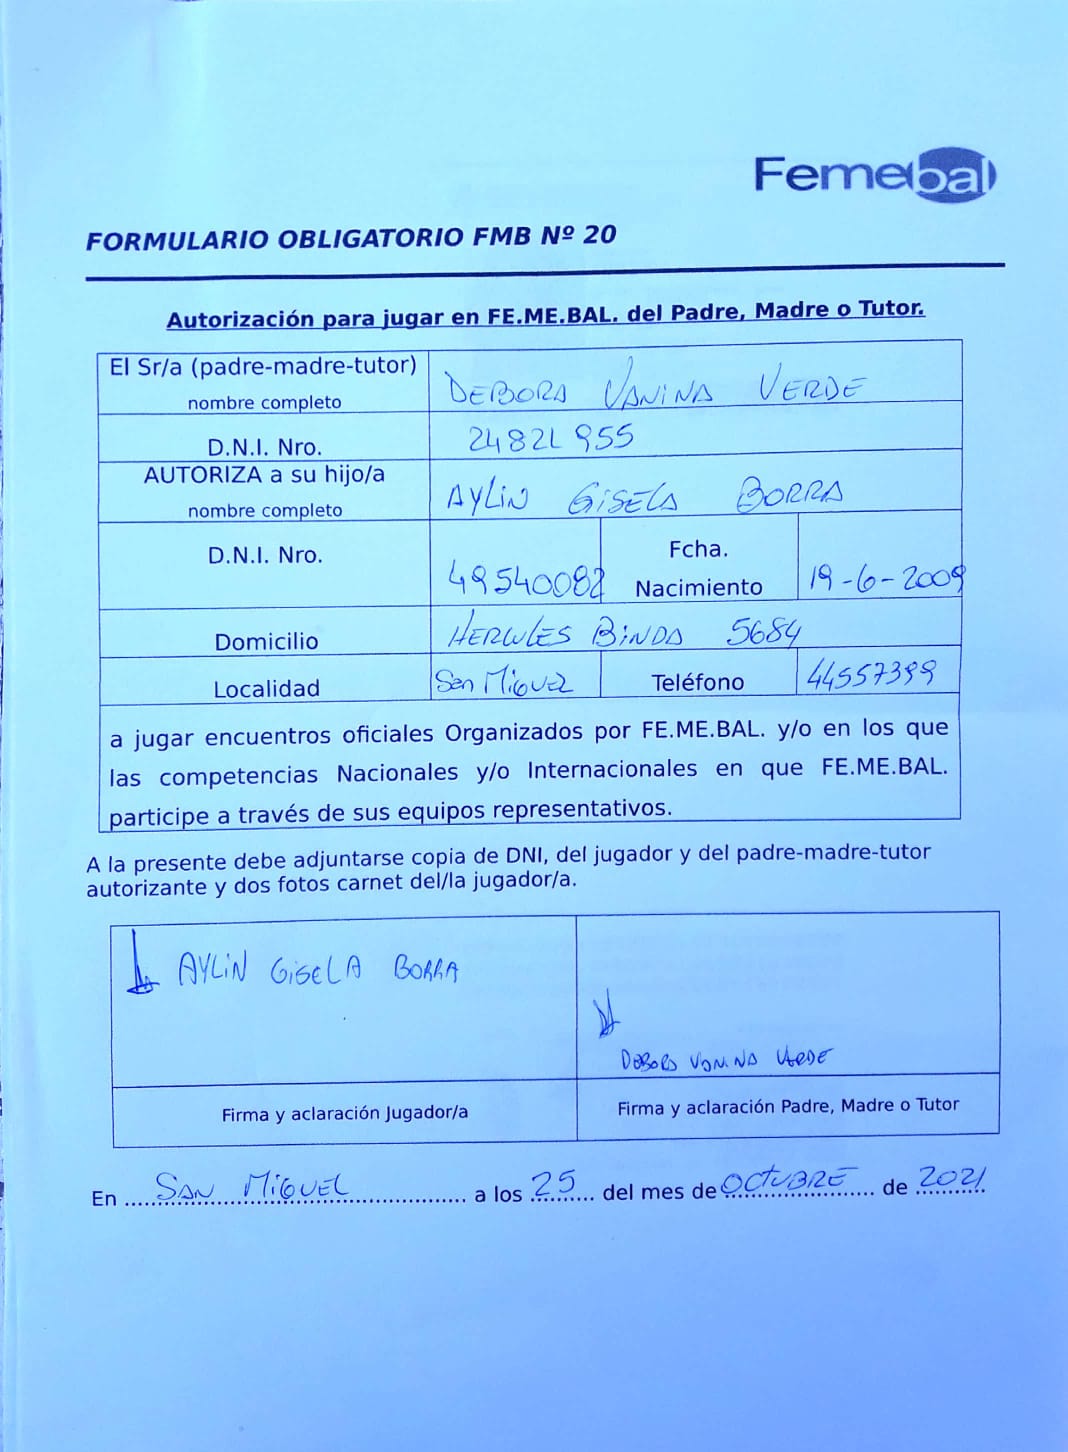 Femebal
FORMULARIO OBLIGATORIO FMB Nº 20
Autorización para jugar en FE.ME.BAL. del Padre, Madre o Tutor.
El Sr/a (padre-madre-tutor)
nombre completo
DEBORA VANINA VERDE
D.N.I. Nro.
24821955
AUTORIZA a su hijo/a
nombre completo
AYLIN GISELA BORRA
D.N.I. Nro.
49540082
Fcha.
Nacimiento
19-6-2009
Domicilio
HERCULES BINDA 5684
Localidad
San MiGUEL
Teléfono
44557399
a jugar encuentros oficiales Organizados por FE.ME.BAL. y/o en los que
las competencias Nacionales y/o Internacionales en que FE.ME.BAL.
participe a través de sus equipos representativos.
A la presente debe adjuntarse copia de DNI, del jugador y del padre-madre-tutor
autorizante y dos fotos carnet del/la jugador/a.
AYLIN GISELA BORRA
DEBORA VANINA VERDE
Firma y aclaración Jugador/a
Firma y aclaración Padre, Madre o Tutor
En SAN MIGUEL a los 25 del mes de OCTUBRE de 2021